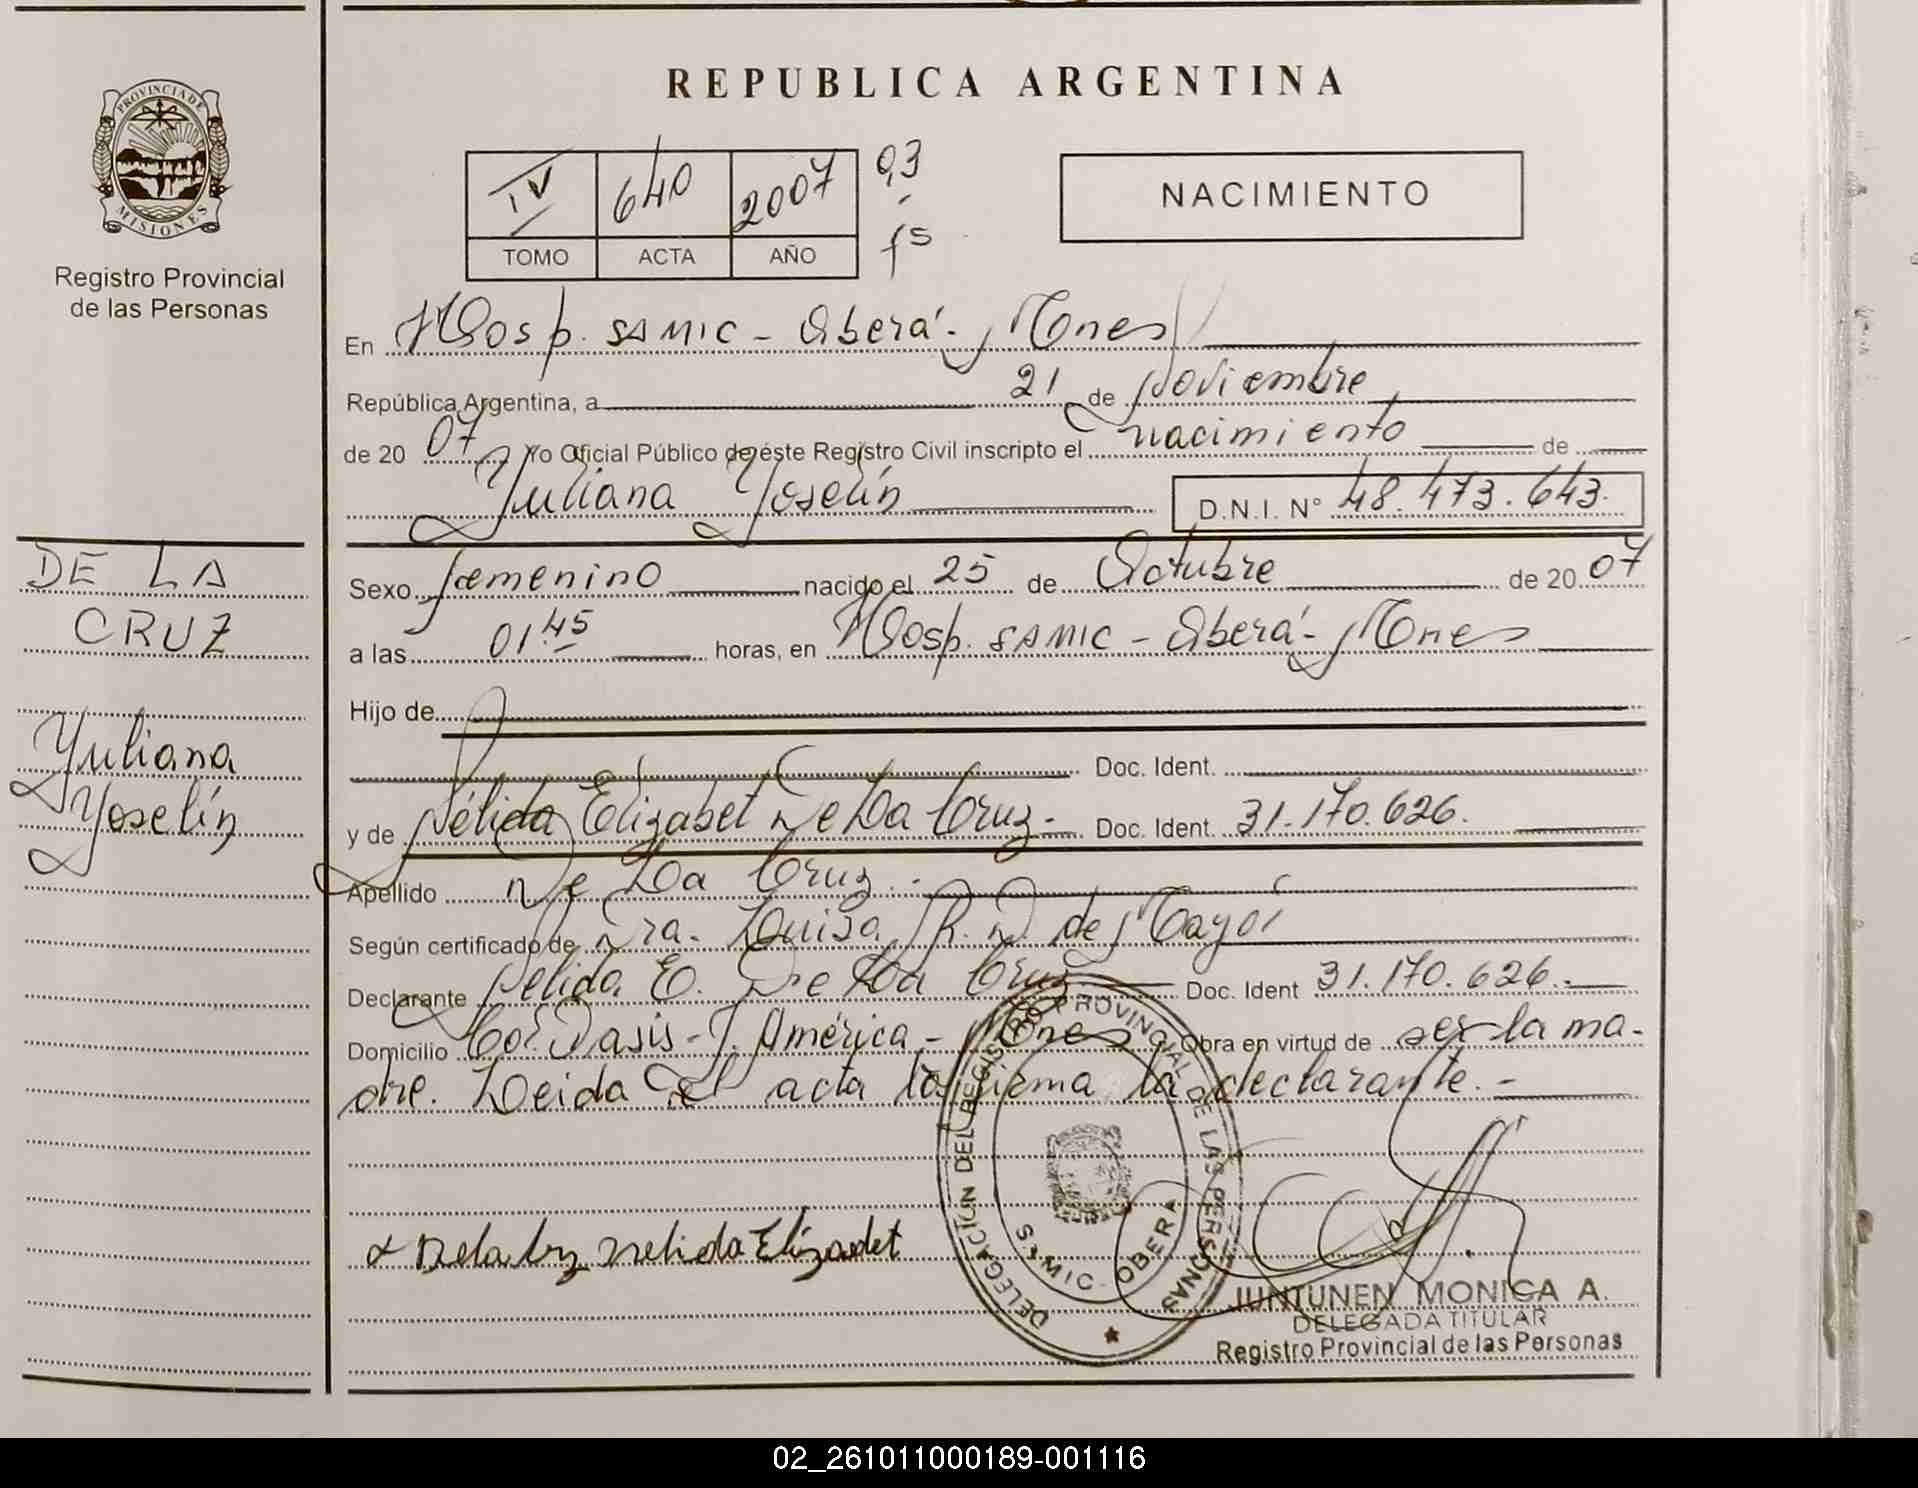 REPUBLICA ARGENTINA
PROVINCIA DE
MISIONES
Registro Provincial
de las Personas
IV 640 2007
TOMO ACTA AÑO
NACIMIENTO
En Hosp. SAMIC - Oberá - Mnes
República Argentina, a 21 de Noviembre
de 2007 Yo Oficial Público de éste Registro Civil inscripto el nacimiento de
Yuliana Yoselín D.N.I. N° 48.473.643.
DE LA
CRUZ
Yuliana
Yoselín
Sexo femenino nacido el 25 de Octubre de 2007
a las 01 45 horas, en Hosp. SAMIC - Oberá - Mnes
Hijo de
Doc. Ident.
y de Nélida Elizabet De La Cruz.- Doc. Ident. 31.170.626.
Apellido De La Cruz.-
Según certificado de Dra. Luisa R. D. de
Declarante Nélida E. De La Cruz Doc. Ident 31.170.626.-
Domicilio Col. Oasis - J. América - Mnes Obra en virtud de ser la ma-
dre. Leida el acta la firma la declarante.-
Dela Nelida Elizadet
DELEGACIÓN DEL REGISTRO PROVINCIAL DE LAS PERSONAS
SAMIC - OBERA
JUNTUNEN MONICA A.
DELEGADA TITULAR
Registro Provincial de las Personas
02_261011000189-001116